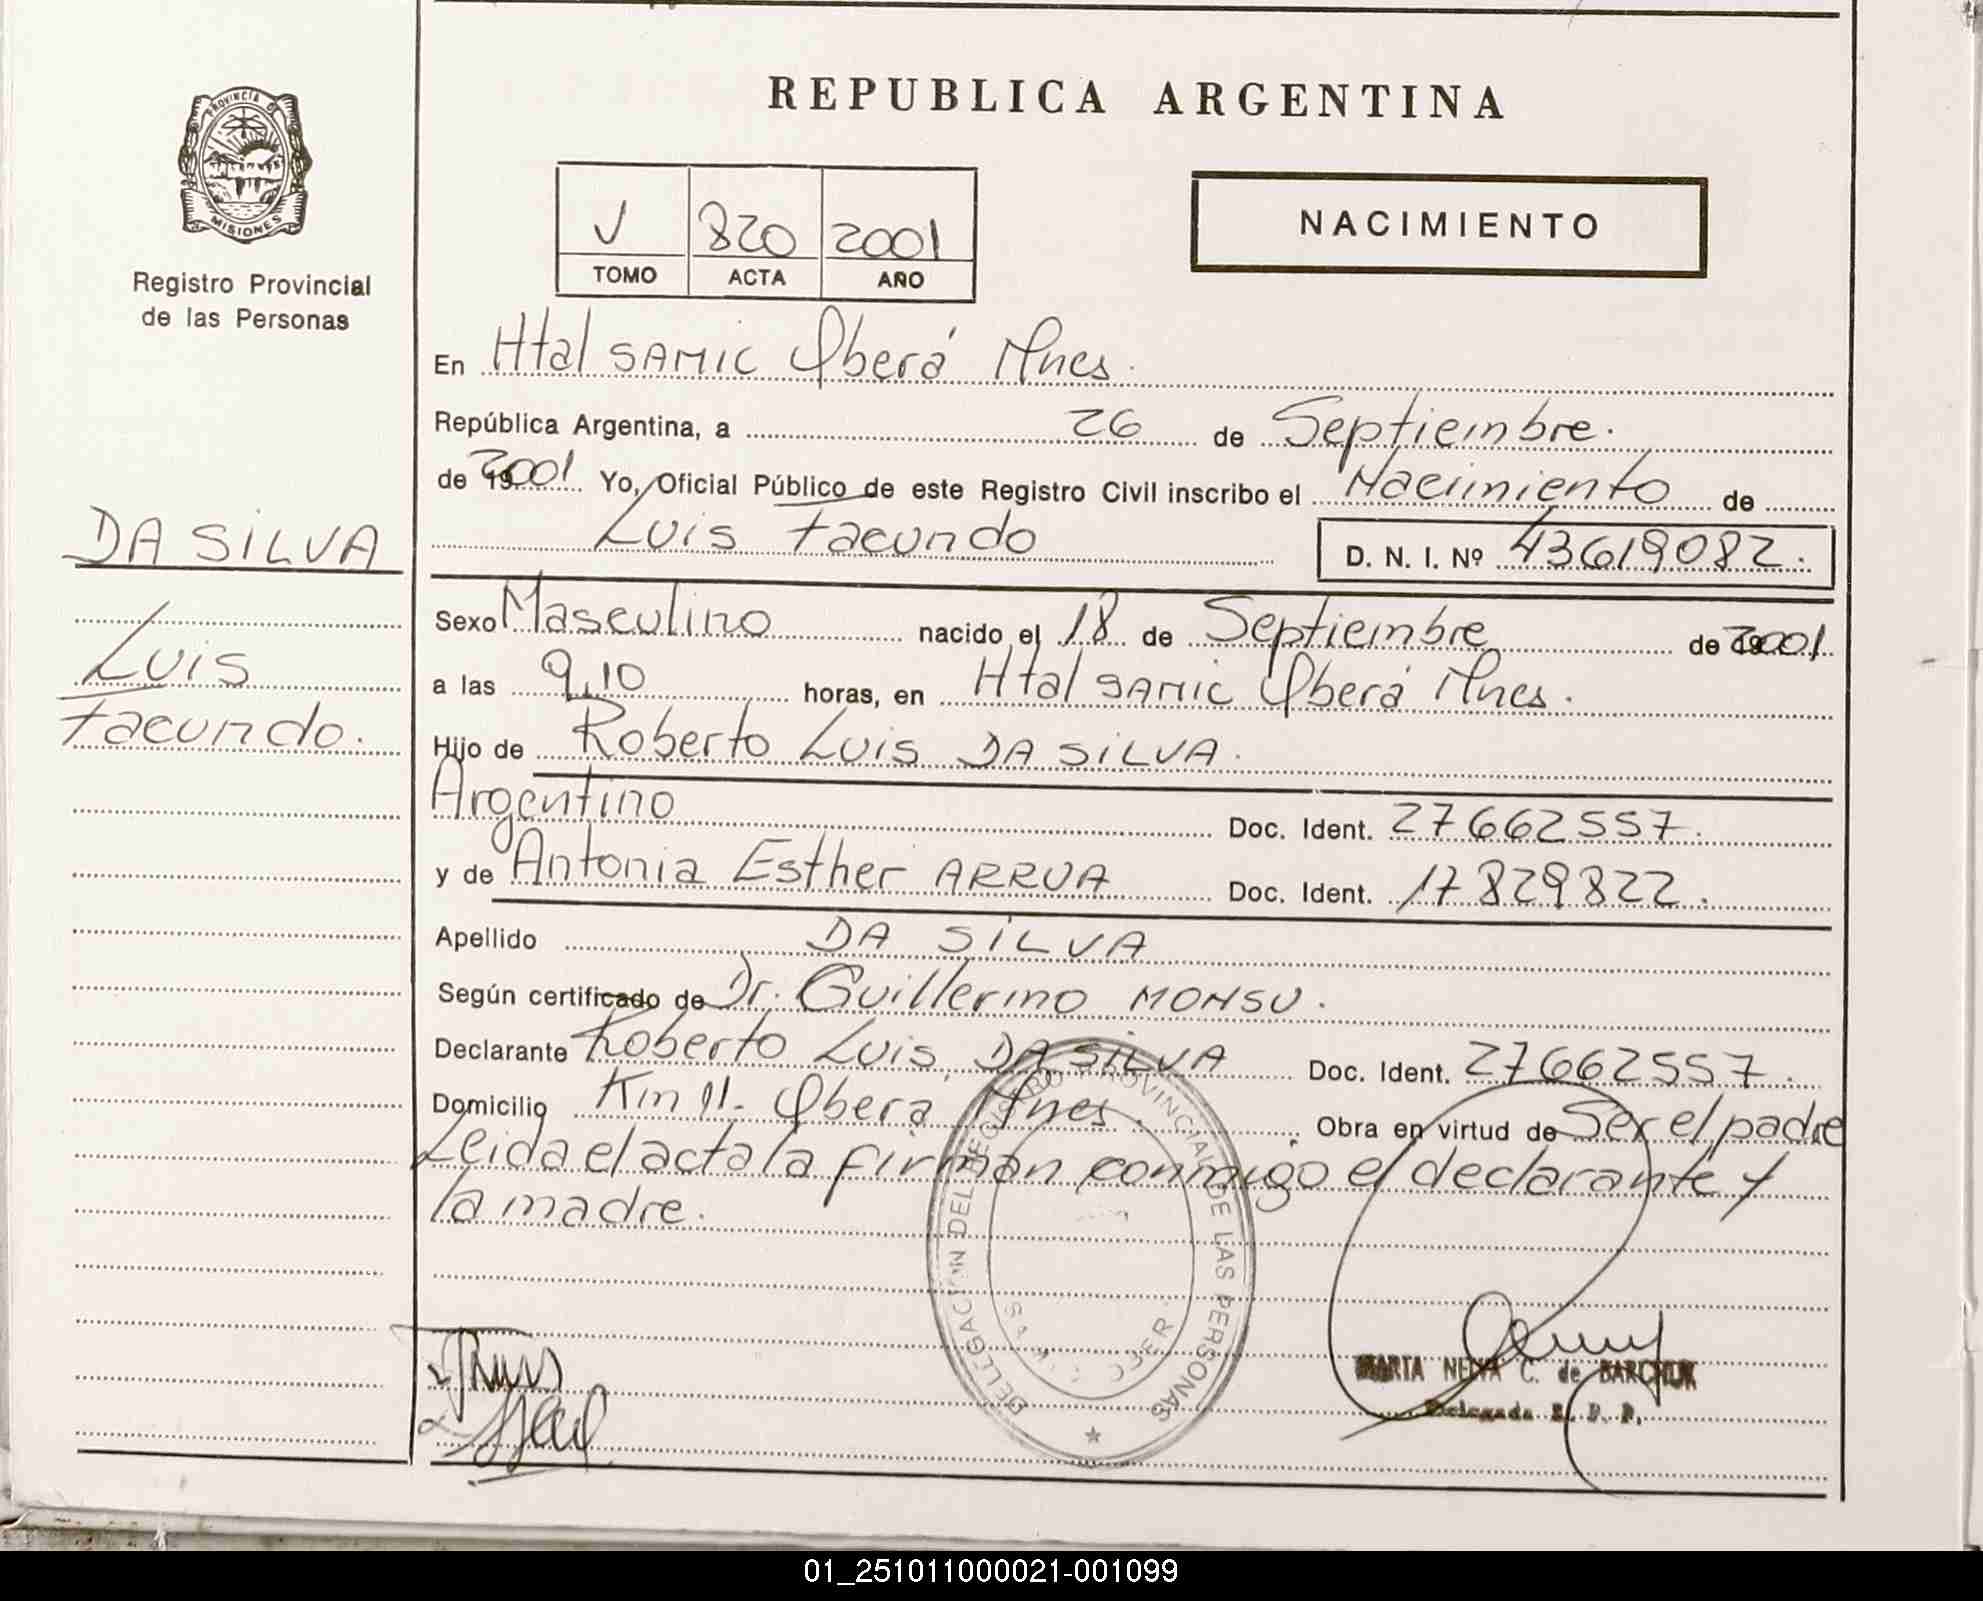 REPUBLICA ARGENTINA
PROVINCIA DE
MISIONES
Registro Provincial
de las Personas
V 820 2001
TOMO ACTA AÑO
NACIMIENTO
En Htal SAMIC Oberá Mnes.
República Argentina, a 26 de Septiembre.
de 2001 Yo, Oficial Público de este Registro Civil inscribo el Nacimiento de
Luis Facundo D. N. I. Nº 43619082.
DA SILVA
Luis
Facundo.
Sexo Masculino nacido el 18 de Septiembre de 2001
a las 9,10 horas, en Htal SAMIC Oberá Mnes.
Hijo de Roberto Luis DA SILVA.
Argentino Doc. Ident. 27662557.
y de Antonia Esther ARRUA Doc. Ident. 17829822.
Apellido DA SILVA
Según certificado de Dr. Guillermo MONSU.
Declarante Roberto Luis DA SILVA Doc. Ident. 27662557.
Domicilio Km 11. Oberá Mnes. Obra en virtud de Ser el padre
Leida el acta la firman conmigo el declarante y
la madre.
DELEGACION DEL REGISTRO PROVINCIAL DE LAS PERSONAS
MARTA NELVA C. de BARCHUK
Delegada R. P. P.
01_251011000021-001099